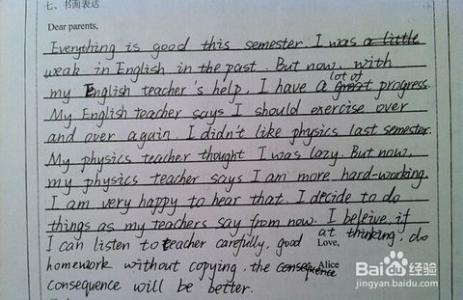 七、书面表达
Dear parents,
Everything is good this semester. I was a little
weak in English in the past. But now, with
my English teacher's help, I have a lot of great progress.
My English teacher says I should exercise over
and over again. I didn't like physics last semester.
My physics teacher thought I was lazy. But now,
my physics teacher says I am more hard-working.
I am very happy to hear that. I decide to do
things as my teachers say from now. I beleive, if
I can listen to teacher carefully, good at thinking, do
Love,
homework without copying, the consequence
Alice
consequence will be better.
Bai 百度经验
jingyan.baidu.com